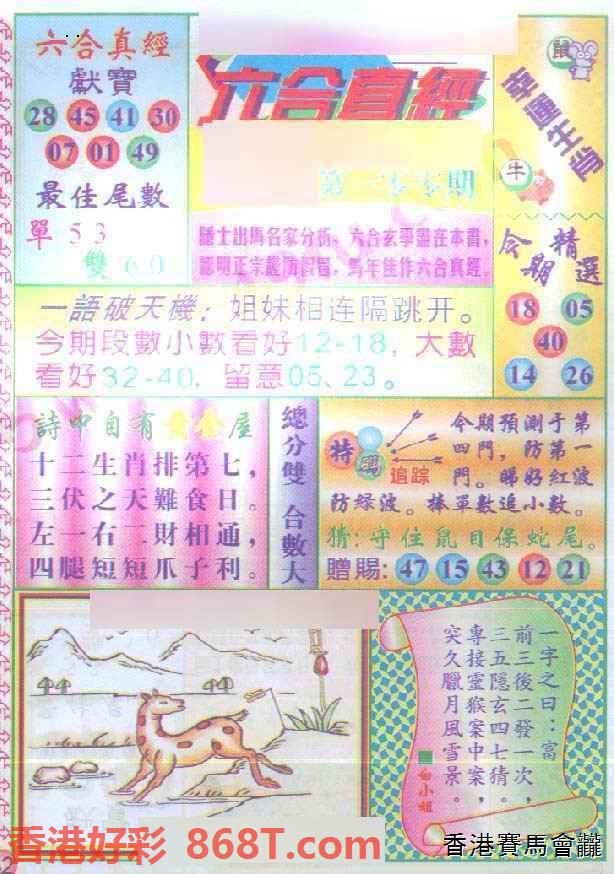 六合真經
獻寶
28 45 41 30
07 01 49
最佳尾數
單 53
雙 60
六合真經
第一零零期
隱士出馬名家分析，六合玄學盡在本書，
認明正宗嚴防假冒，馬年佳作六合真經。
鼠
幸運生肖
牛
今期精選
18 05
40
14 26
一語破天機：姐妹相连隔跳开。
今期段數小數看好12-18，大數
看好32-40，留意05、23。
詩中自有黃金屋
十二生肖排第七，
三伏之天難食日。
左一右二財相通，
四腿短短爪子利。
總分雙 合數大
特碼
追踪
今期預測于第
四門，防第一
門。睇好紅波
防綠波。捧單數追小數。
猜：守住鼠目保蛇尾。
贈賜：47 15 43 12 21
一字之曰：富
前三後二發一次，
三五隱玄四七猜。
專接靈猴案中案，
突久臘月風雪景。
白小姐
香港好彩 868T.com
香港賽馬會